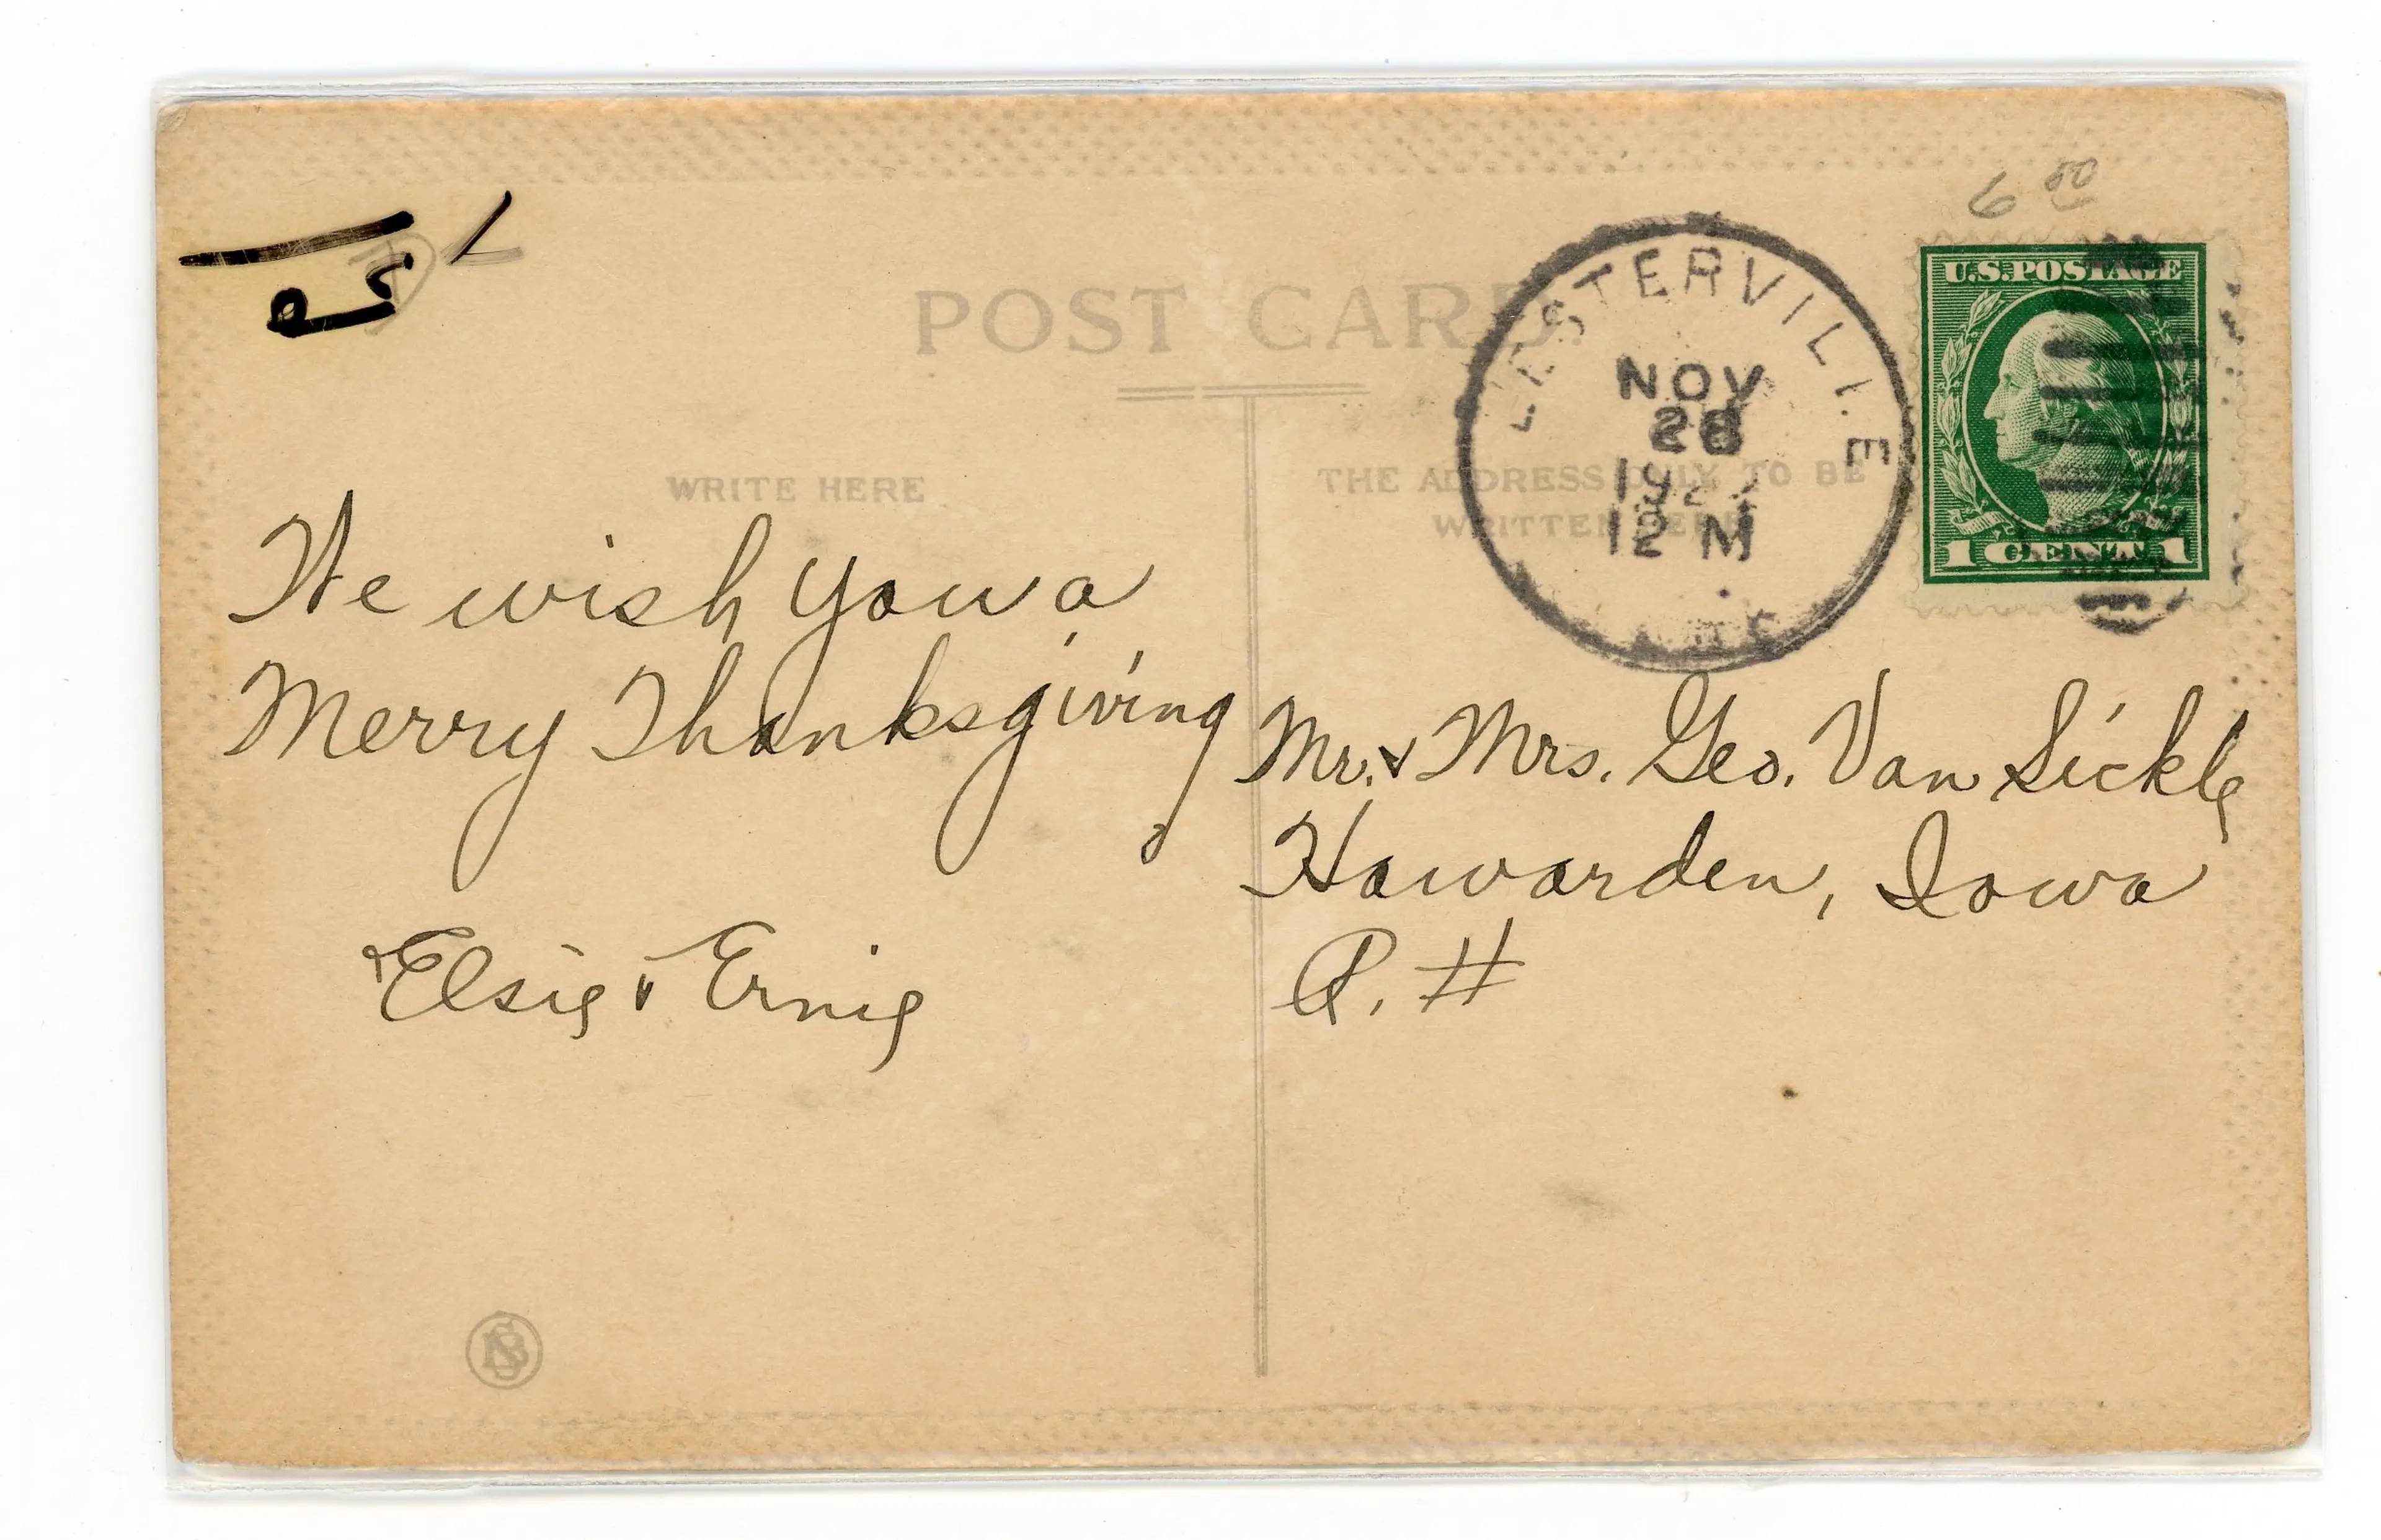 6 80
POST CARD.
LESTERVILLE
NOV
28
12 M
U.S. POSTAGE
1 CENT 1
WRITE HERE
THE ADDRESS ONLY TO BE
WRITTEN HERE
We wish you a
Merry Thanksgiving
Elsie & Ernie
Mr. & Mrs. Geo. Van Sickle
Hawarden, Iowa
R. #